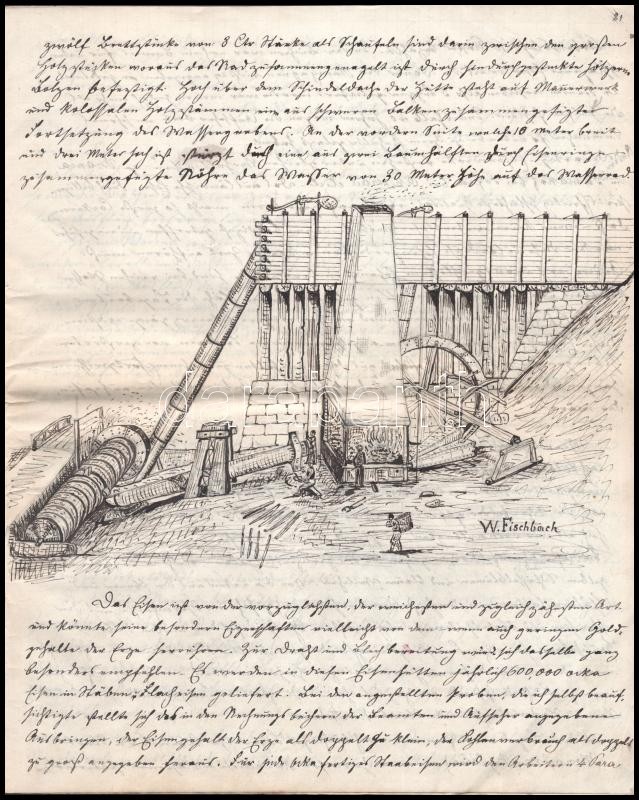 21
zwölf Brettstücke von 8 Ctr Stärke als Schaufeln sind darin zwischen den großen
Holzstücken woraus das Rad zusammengenagelt ist durch hindurchgesteckte hölzern
Bolzen befestigt. Hoch über dem Schindeldache der Hütte steht auf Mauerwerk
und kolossalen Holzstämmen ein aus schweren Balken zusammengefügte
Fortsetzung des Wassergrabens. An der vordern Seite welche 10 Meter breit
und drei Meter hoch ist stürzt durch eine aus zwei Baumhälften durch Eisenringe
zusammengefügte Röhre das Wasser von 30 Meter Höhe auf das Wasserrad
W. Fischbach
Das Eisen ist von der vorzüglichsten, der weichesten und zugleich zähesten Art
und könnte seine besondern Eigenschaften vielleicht von dem wenn auch geringem Gold-
gehalte der Erze herrühren. Zur Draht und Blech bereitung wird sich dasselbe ganz
besonders empfehlen. Es werden in diesen Eisenhütten jährlich 600,000 ocka
Eisen in Stäben, Flacheisen geliefert. Bei den angestellten Proben, die ich selbst beauf-
sichtigte stellte sich das in den Rechnungsbüchern der Beamten und Aufseher angegebene
Ausbringen, der Eisengehalt der Erze als doppelt zu klein, der Kohlenverbrauch als doppelt
zu groß angegeben heraus. Für jede Ocka fertiges Stabeisen wird den Arbeitern 4 Para